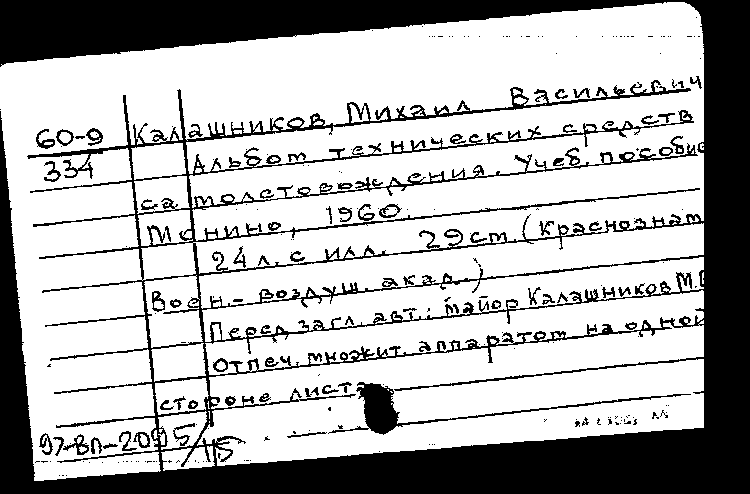 60-9
334
Калашников, Михаил Васильевич
Альбом технических средств
самолетовождения. Учеб. пособие
Монино, 1960.
24 л. с илл. 29 см. (Краснознам
Воен.- воздуш. акад.)
Перед загл. авт.: майор Калашников М.В
Отпеч. множит. аппаратом на одной
стороне листа
97-ВП-2095/15